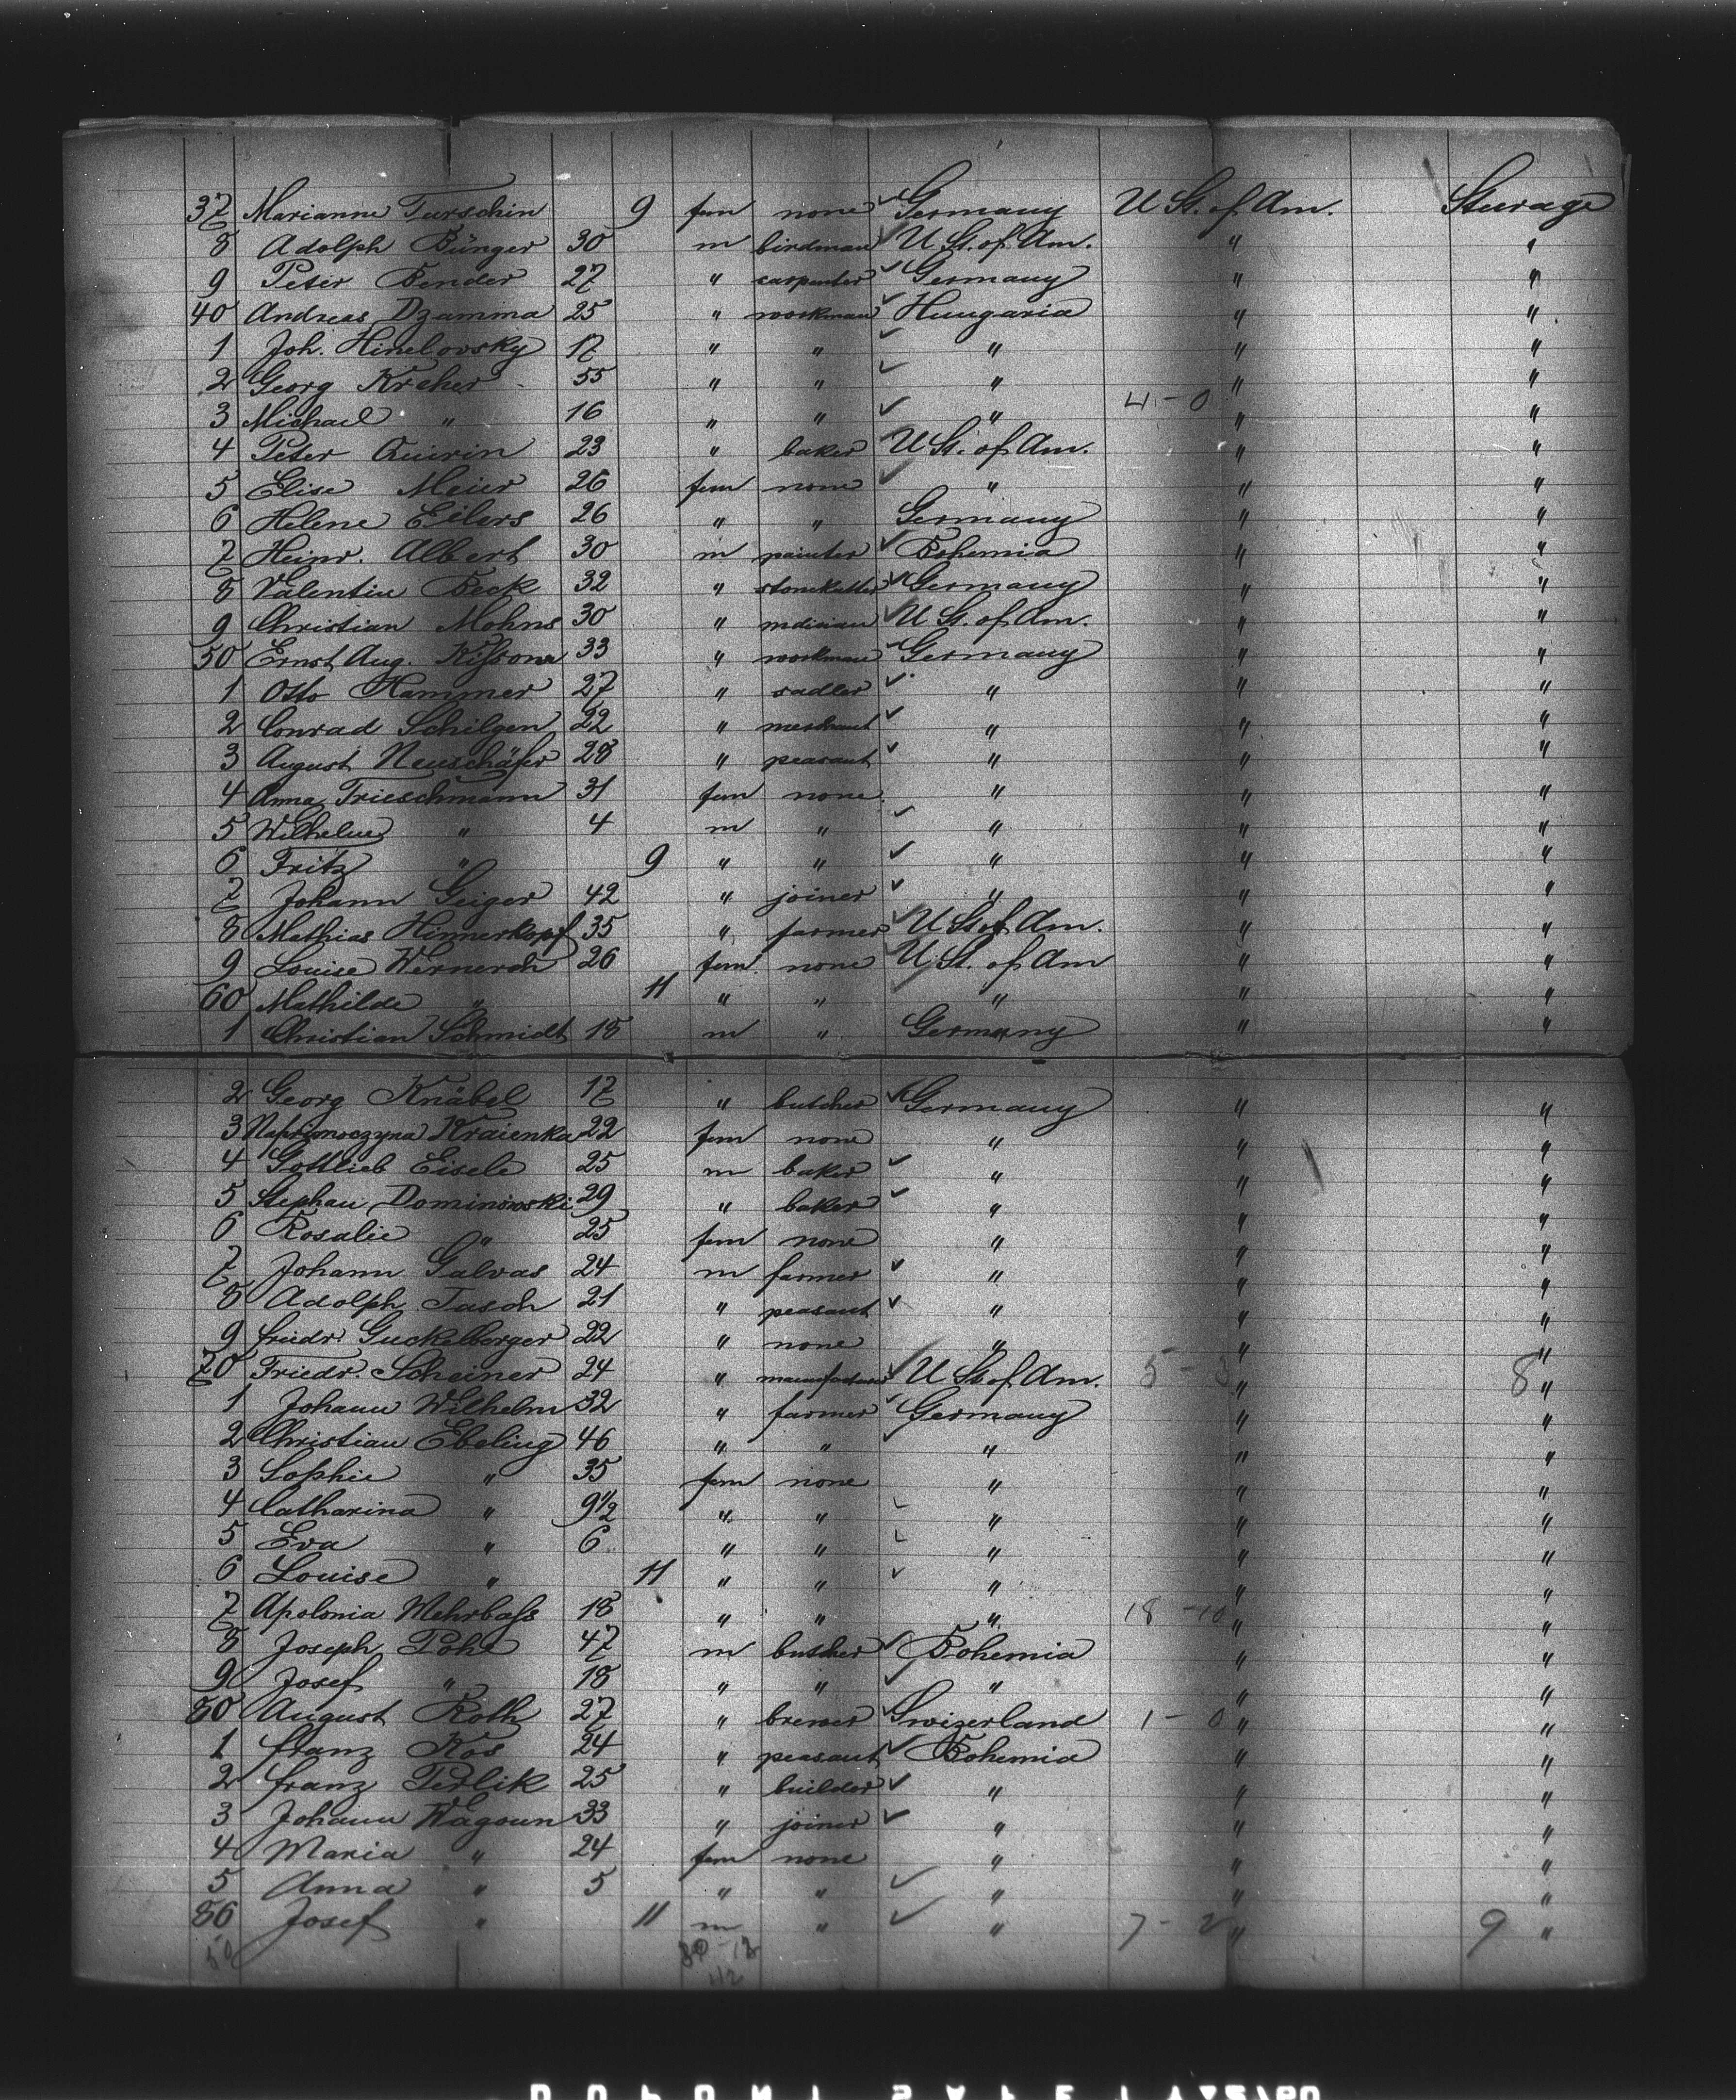 37 Marianne Turschin 9 fem none Germany U St. of Am. Steerage
8 Adolph Bünger 30 m birdman U St. of Am. " "
9 Peter Bender 27 " carpenter Germany " "
40 Andreas Dzamma 25 " workman Hungaria " "
1 Joh. Hinelovsky 17 " " " " "
2 Georg Kreher 55 " " " "
3 Michael " 16 " " " 4 - 0 " "
4 Peter Quirin 23 " baker U St. of Am. " "
5 Elise Meier 26 fem none " " "
6 Helene Eilers 26 " " Germany " "
7 Heinr. Albert 30 m painter Bohemia " "
8 Valentin Beck 32 " stonekutter Germany " "
9 Christian Mohns 30 " U St. of Am. " "
50 Ernst Aug. 33 " workman Germany " "
1 Otto Hammer 27 " sadler " " "
2 Conrad Schilgen 22 " merchant " " "
3 August Neuschäfer 28 " peasant " " "
4 Anna Trieschmann 31 fem none " " "
5 Wilhelm " 4 m " " " "
6 Fritz " 9 " " " " "
7 Johann Geiger 42 " joiner " " "
8 Mathias Hinnerkopf 35 " farmer U St of Am. " "
9 Louise Wernerch 26 fem. none U. St. of Am " "
60 Mathilde " 11 " " " " "
1 Christian Schmidt 18 m " Germany " "
2 Georg Knäbel 17 " butcher Germany " "
3 Kraienka 22 fem none " " "
4 Gottlieb Eisele 25 m baker " " "
5 Stephan Dominowski 29 " baker " " "
6 Rosalie " 25 fem none " " "
7 Johann Galvas 24 m farmer " " "
8 Adolph Tasch 21 " peasant " " "
9 Friedr. Guckelberger 22 " none " " "
70 Friedr. Scheiner 24 " U St of Am. 5 - 3 " 8 "
1 Johann Wilhelm 32 " farmer Germany " "
2 Christian Ebeling 46 " " " " "
3 Sophie " 35 fem none " " "
4 Catharina " 9 1/2 " " " " "
5 Eva " 6 " " " " "
6 Louise " 11 " " " " "
7 Apolonia Mehrbass 18 " " " 18 - 10 " "
8 Joseph Pohl 47 m butcher Bohemia " "
9 Josef " 18 " " " " "
80 August Roth 27 " brewer Swizerland 1 - 0 " "
1 Franz Kos 24 " peasant Bohemia " "
2 Franz Terlik 25 " builder " " "
3 Johann Wagoun 33 " joiner " " "
4 Maria " 24 fem none " " "
5 Anna " 5 " " " " "
86 Josef " 11 m " " 7 - 2 " 9 "
50 - 12
42